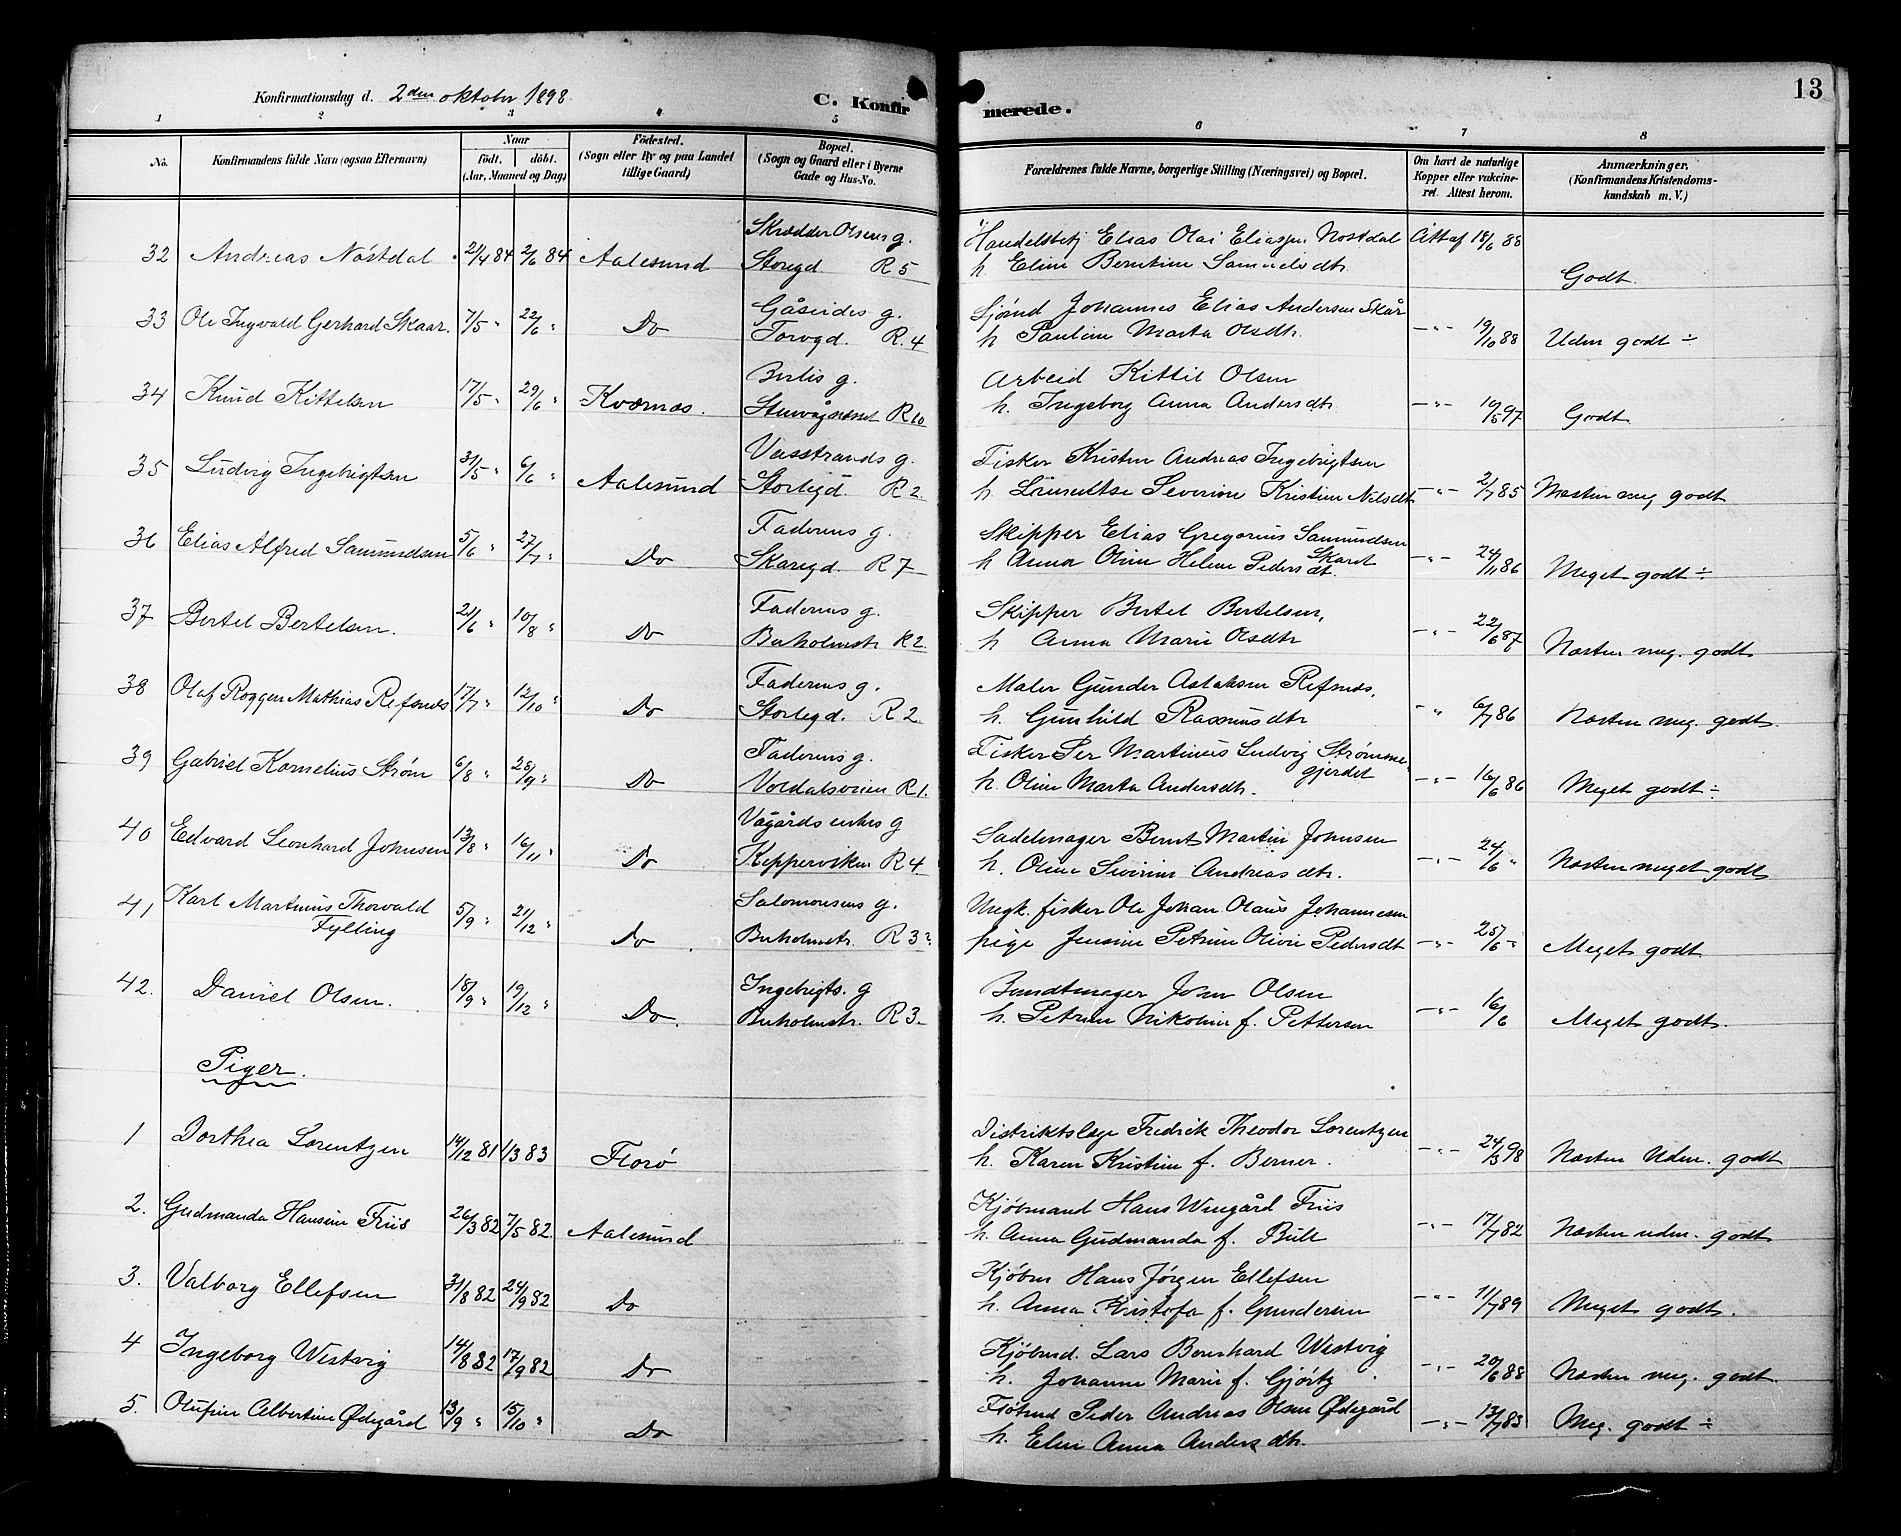 Konfirmationsdag d. 2den oktober 1898. C. Konfir
merede. 13
1 2 3 4 5 6 7 8
No. Konfirmandens fulde Navn (ogsaa Efternavn) Naar födt. döbt. (Aar, Maaned og Dag) Födested. (Sogn eller By og paa Landet tillige Gaard) Bopæl. (Sogn og Gaard eller i Byerne Gade og Hus-No. Forældrenes fulde Navne, borgerlige Stilling (Næringsvei) og Bopæl. Om havt de naturlige Kopper eller vakcineret. Attest herom. Anmærkninger. (Konfirmandens Kristendomskundskab m. V.)
Skrædder Olsens g. Handelsbetj Elias Olai Eliassen Nostdal Att af 18/6 88
32 Andreas Nóstdal 2/4 84 2/6 84 Aalesund Storgd R 5 h. Eline Berntine Samuelsdtr. Godt.
Gåseides g. Sjømd Johannes Elias Andersen Skår
33 Ole Ingvald Gerhard Skaar. 7/5 " 22/6 " Do Torvgd. R. 4 h Pauline Marta Olsdtr. -"- 19/10 88 Uden godt ÷
Bertis g. Arbeid Kittil Olsen
34 Knud Kittelsen 17/5 " 29/6 " Kvernes. R 10 h. Ingeborg Anna Andersdtr -"- 10/5 97 Godt
Vasstrands g. Fisker Kristen Andreas Ingebrigtsen
35 Ludvig Ingebrigtsen 31/5 " 6/6 " Aalesund Storlegd. R 2. h. Severine Kristine Nilsdt -"- 2/7 85 Næsten meg godt
Faderens g. Skipper Elias Gregorius Samundsen
36 Elias Alfred Samundsen 5/6 " 27/7 " Do Skaregd. R 7 h Anna Oline Helene Pedersdt. Skaret -"- 24/11 86 Meget godt ÷
Faderens g. Skipper Bertel Bertelsen,
37 Bertel Bertelsen. 21/6 " 10/8 " Do Buholmstr R 2. h Anna Marie Olsdtr -"- 22/6 87 Næsten meg. godt
Faderens g. Maler Gunder Aslaksen Refsnes,
38 Olaf Roggen Mathias Refsnes 17/7 " 12/10 " Do Storlegd. R 2. h. Gunhild Rasmusdtr - " 6/7 86 Næsten meg. godt.
Faderens g. Fisker Per Martinus Ludvig Strømme-
gjerdet
39 Gabriel Kornelius Strøm 6/8 " 28/9 " Do Voldalsveien R 1. h. Oline Marta Andersdtr. -"- 16/6 86 Meget godt ÷
Vågårds enkes g Sadelmager Bernt Martin Johnsen
40 Edvard Leonhard Johnsen 13/8 " 16/11 " Do Kippervikn R 4 h. Oline Severine Andreasdtr. -"- 24/6 " Næsten meget godt
Salomonsens g. Ungk. fisker Ole Johan Olaus Johannesen
41 Karl Martinus Thorvald
Fylling 5/9 " 21/12 " Do Buholmstr. R 3. pige Jensine Petrine Olivie Pedersdt -"- 25/6 " Meget godt
Ingebrigts. g Bundtmager John Olsen
42. Daniel Olsen. 18/9 " 19/12 " Do. Buholmstr. R 3. h. Petrine Nikoline f. Pettersen -"- 16/6 Meget godt.
Piger.
1 Dorthea Lorentzen 14/12 81 1/3 83 Florø Distriktslæge Fredrik Theodor Lorentzen
h. Karen Kristine f. Berner. -"- 24/3 98 Næsten Uden. godt
2. Gudmanda Hansine Friis 26/3 82 7/5 82. Aalesund Kjøbmand Hans Wingård Friis
h. Anna Gudmanda f. Bull -"- 17/7 82 Næsten uden. godt
3. Valborg Ellefsen 31/8 82 24/9 82 Do Kjøbm Hans Jørgen Ellefsen
h. Anna Kristofa f. Gundersen -"- 11/7 89 Meget godt.
4 Ingeborg Westvig 14/8 82 17/9 82 Do Kjøbmd. Lars Bernhard Westvig
h. Johanne Marie f. Gjørtz -"- 20/6 88 Næsten meg. godt.
5. Olufine Albertine Ødegård 13/9 " 15/10 " Do Peder Andreas Olsen Ødegård
h. Elen Anna Andersdtr. -"- 13/7 83 Meg. godt ÷